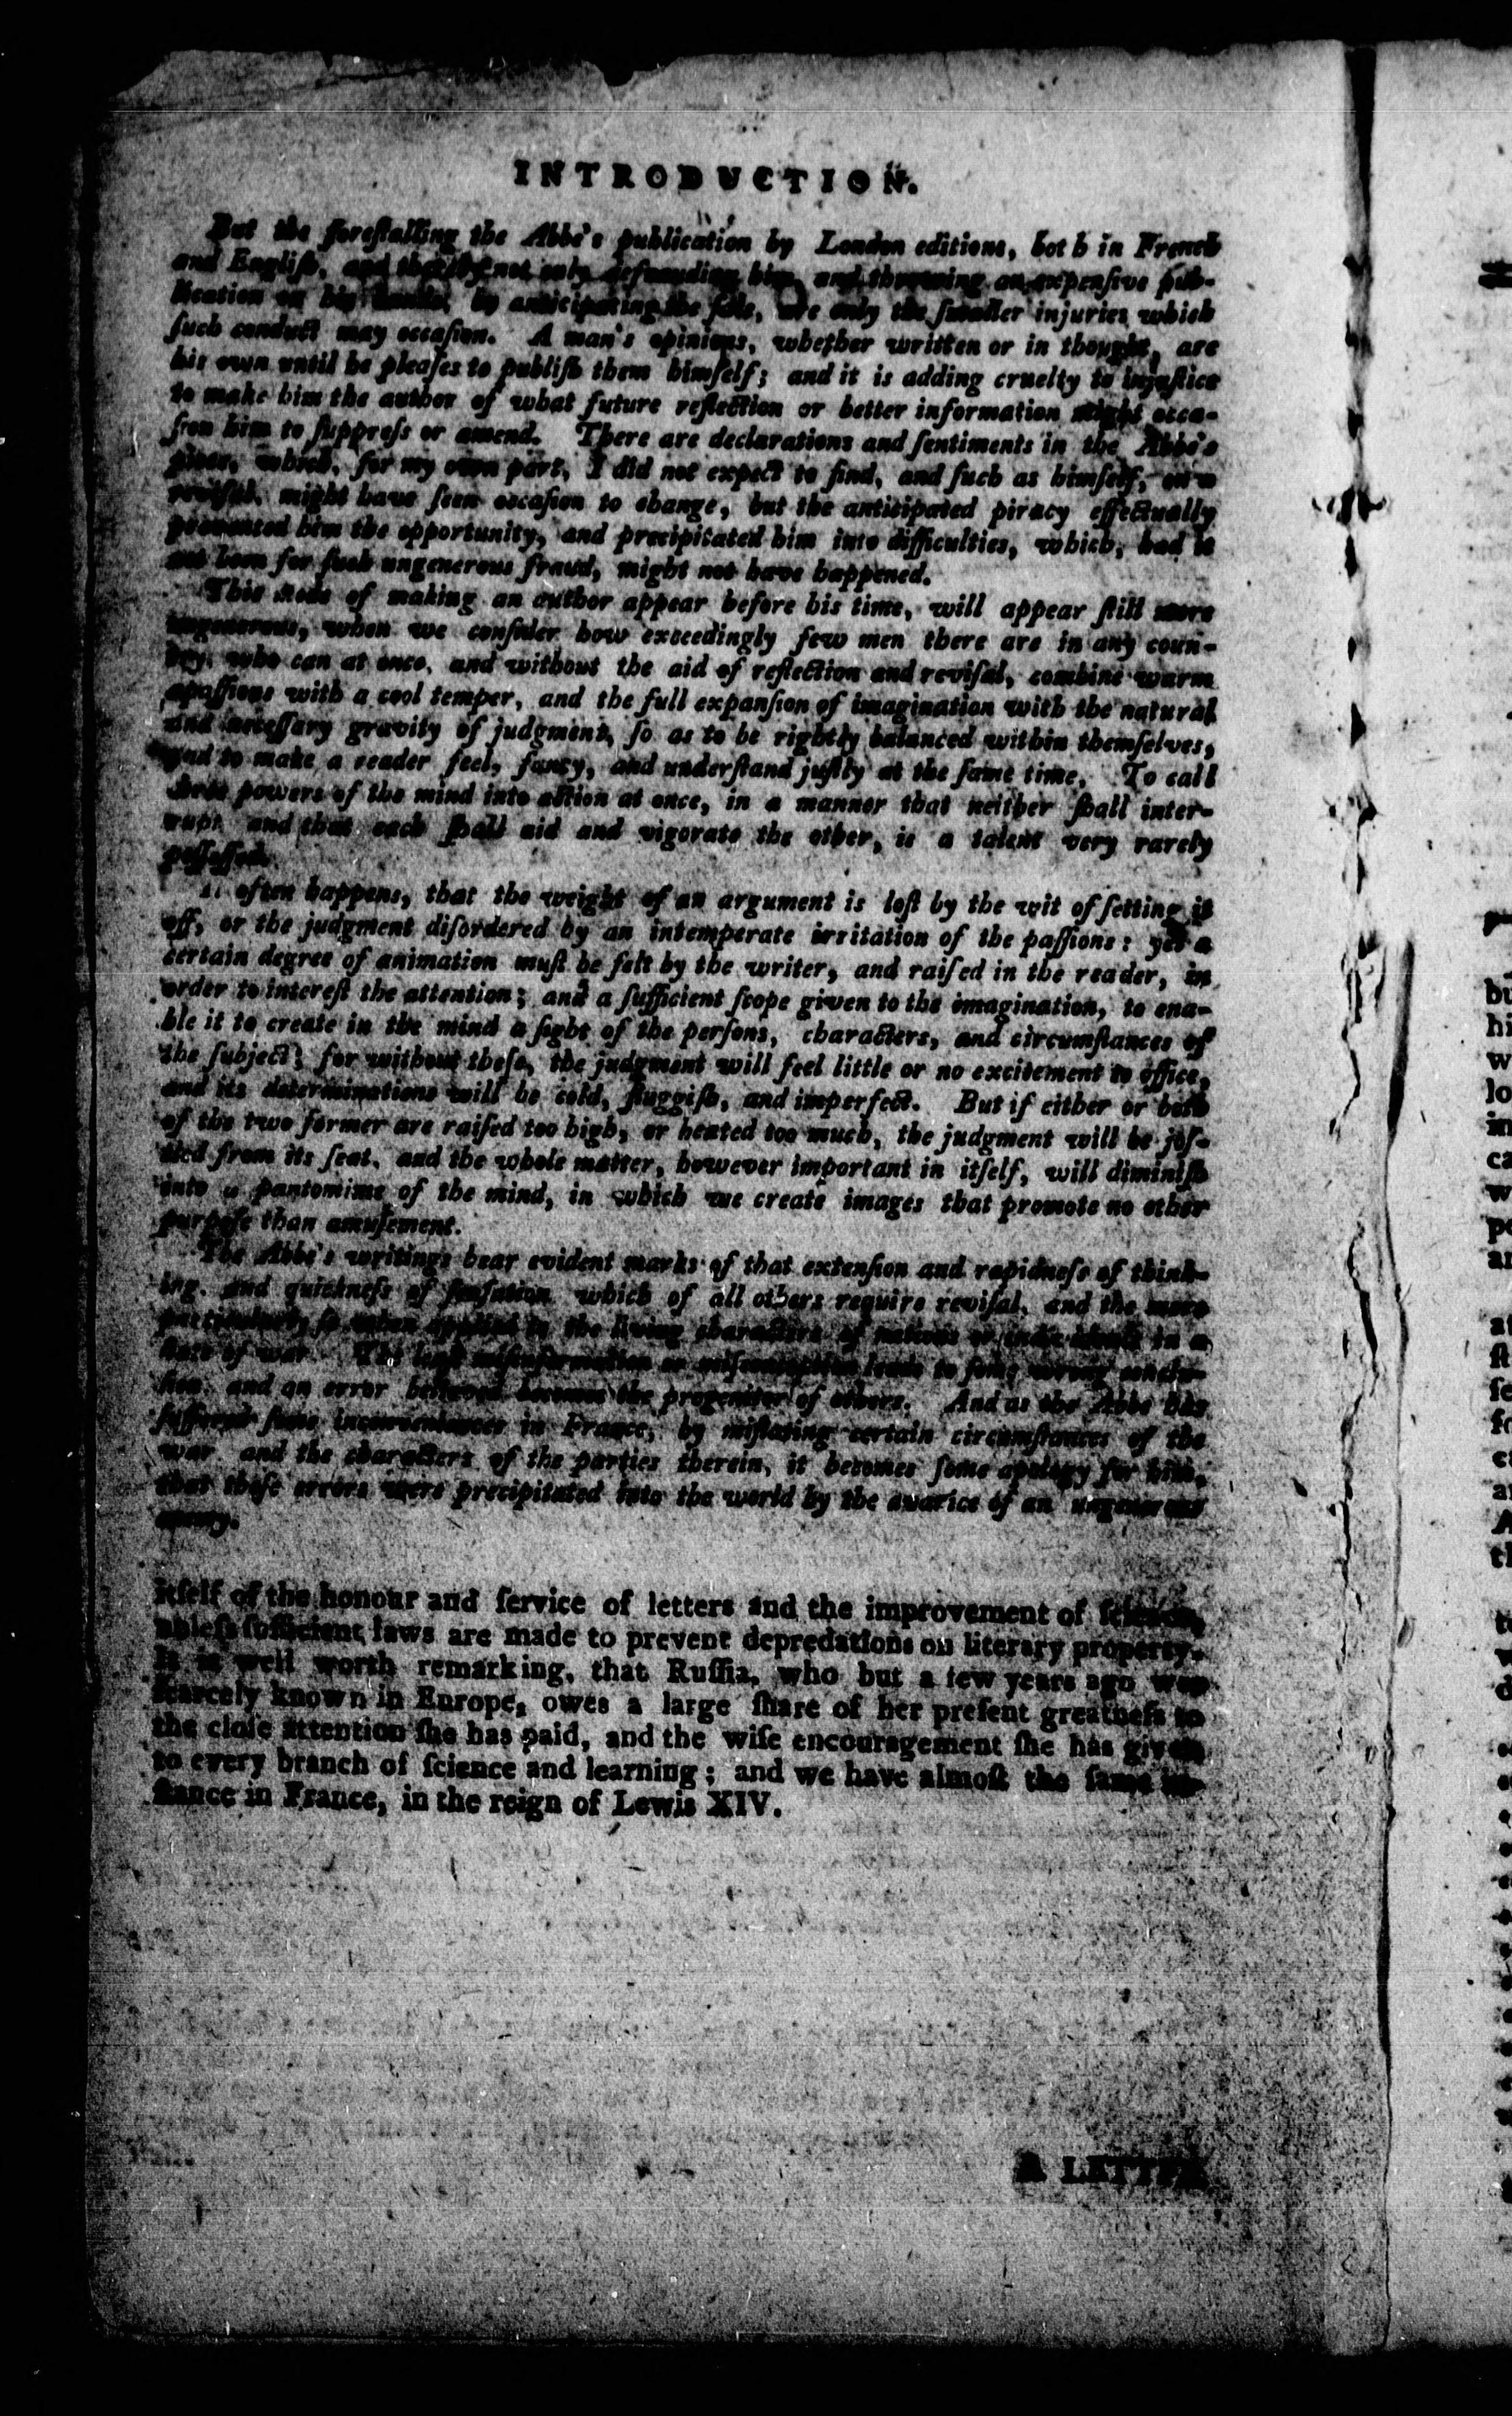 INTRODUCTION.
But the foreſtalling the Abbe's publication by London editions, both in French
and Engliſh, and thereby not only defrauding him and throwing an expenſive pub-
lication on his hands, by anticipating the ſale, are only the ſmaller injuries which
ſuch conduct may occaſion. A man's opinions, whether written or in thought, are
his own until he pleaſes to publiſh them himſelf; and it is adding cruelty to injuſtice
to make him the author of what future reflection or better information might occa-
ſion him to ſuppreſs or amend. There are declarations and ſentiments in the Abbe's
piece, which, for my own part, I did not expect to find, and ſuch as himſelf, on a
reviſal, might have ſeen occaſion to change, but the anticipated piracy effectually
prevented him the opportunity, and precipitated him into difficulties, which, had it
not been for ſuch ungenerous fraud, might not have happened.
This mode of making an author appear before his time, will appear ſtill more
ungenerous, when we conſider how exceedingly few men there are in any coun-
try, who can at once, and without the aid of reflection and reviſal, combine warm
paſſions with a cool temper, and the full expanſion of imagination with the natural
and neceſſary gravity of judgment, ſo as to be rightly balanced within themſelves,
and to make a reader feel, fancy, and underſtand juſtly at the ſame time. To call
three powers of the mind into action at once, in a manner that neither ſhall inter-
rupt, and that each ſhall aid and vigorate the other, is a talent very rarely
poſſeſſed.
It often happens, that the weight of an argument is loſt by the wit of ſetting it
off, or the judgment diſordered by an intemperate irritation of the paſſions: yet a
certain degree of animation muſt be felt by the writer, and raiſed in the reader, in
order to intereſt the attention; and a ſufficient ſcope given to the imagination, to ena-
ble it to create in the mind a ſight of the perſons, characters, and circumſtances of
the ſubject; for without theſe, the judgment will feel little or no excitement to office,
and its determinations will be cold, ſluggiſh, and imperfect. But if either or both
of the two former are raiſed too high, or heated too much, the judgment will be joſ-
tled from its ſeat, and the whole matter, however important in itſelf, will diminiſh
into a pantomime of the mind, in which we create images that promote no other
purpoſe than amuſement.
The Abbe's writings bear evident marks of that extenſion and rapidneſs of think-
ing, and quickneſs of ſenſation, which of all others require reviſal, and the more
particularly ſo when applied to the living characters of nations or individuals in a
ſtate of war. The leaſt miſinformation or miſconception leads to ſome wrong concluſ-
ſion, and an error believed becomes the progenitor of others. And as the Abbe has
ſuffered ſome inconveniences in France, by miſtating certain circumſtances of the
war, and the characters of the parties therein, it becomes ſome apology for him,
that thoſe errors were precipitated into the world by the avarice of an ungenerous
enemy.
itſelf of the honour and ſervice of letters and the improvement of ſcience,
unleſs ſufficient laws are made to prevent depredations on literary property.
It is well worth remarking, that Ruſſia, who but a few years ago was
ſcarcely known in Europe, owes a large ſhare of her preſent greatneſs to
the cloſe attention ſhe has paid, and the wiſe encouragement ſhe has given
to every branch of ſcience and learning; and we have almoſt the ſame in-
ſtance in France, in the reign of Lewis XIV.
A LETTER